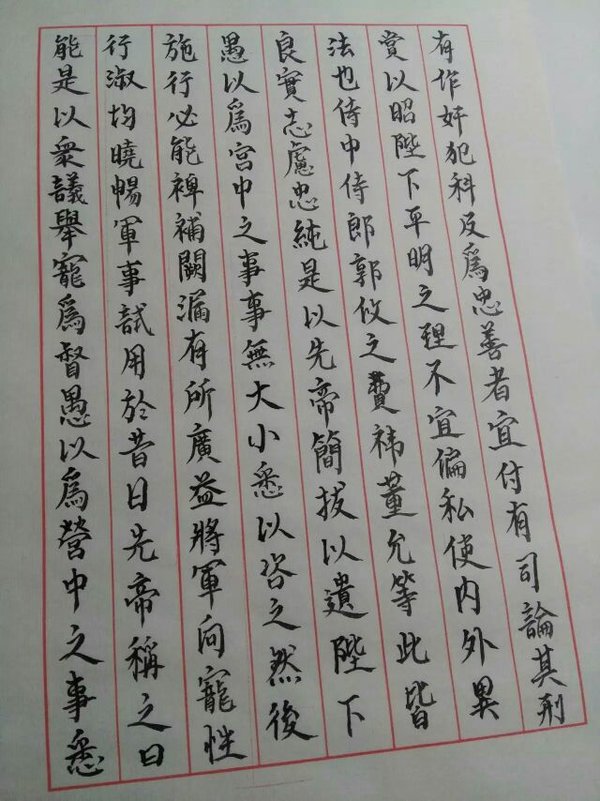 有作奸犯科及爲忠善者宜付有司論其刑
賞以昭陛下平明之理不宜偏私使内外異
法也侍中侍郎郭攸之費禕董允等此皆
良實志慮忠純是以先帝簡拔以遺陛下
愚以爲宮中之事事無大小悉以咨之然後
施行必能裨補闕漏有所廣益將軍向寵性
行淑均曉暢軍事試用於昔日先帝稱之曰
能是以衆議舉寵爲督愚以爲營中之事悉